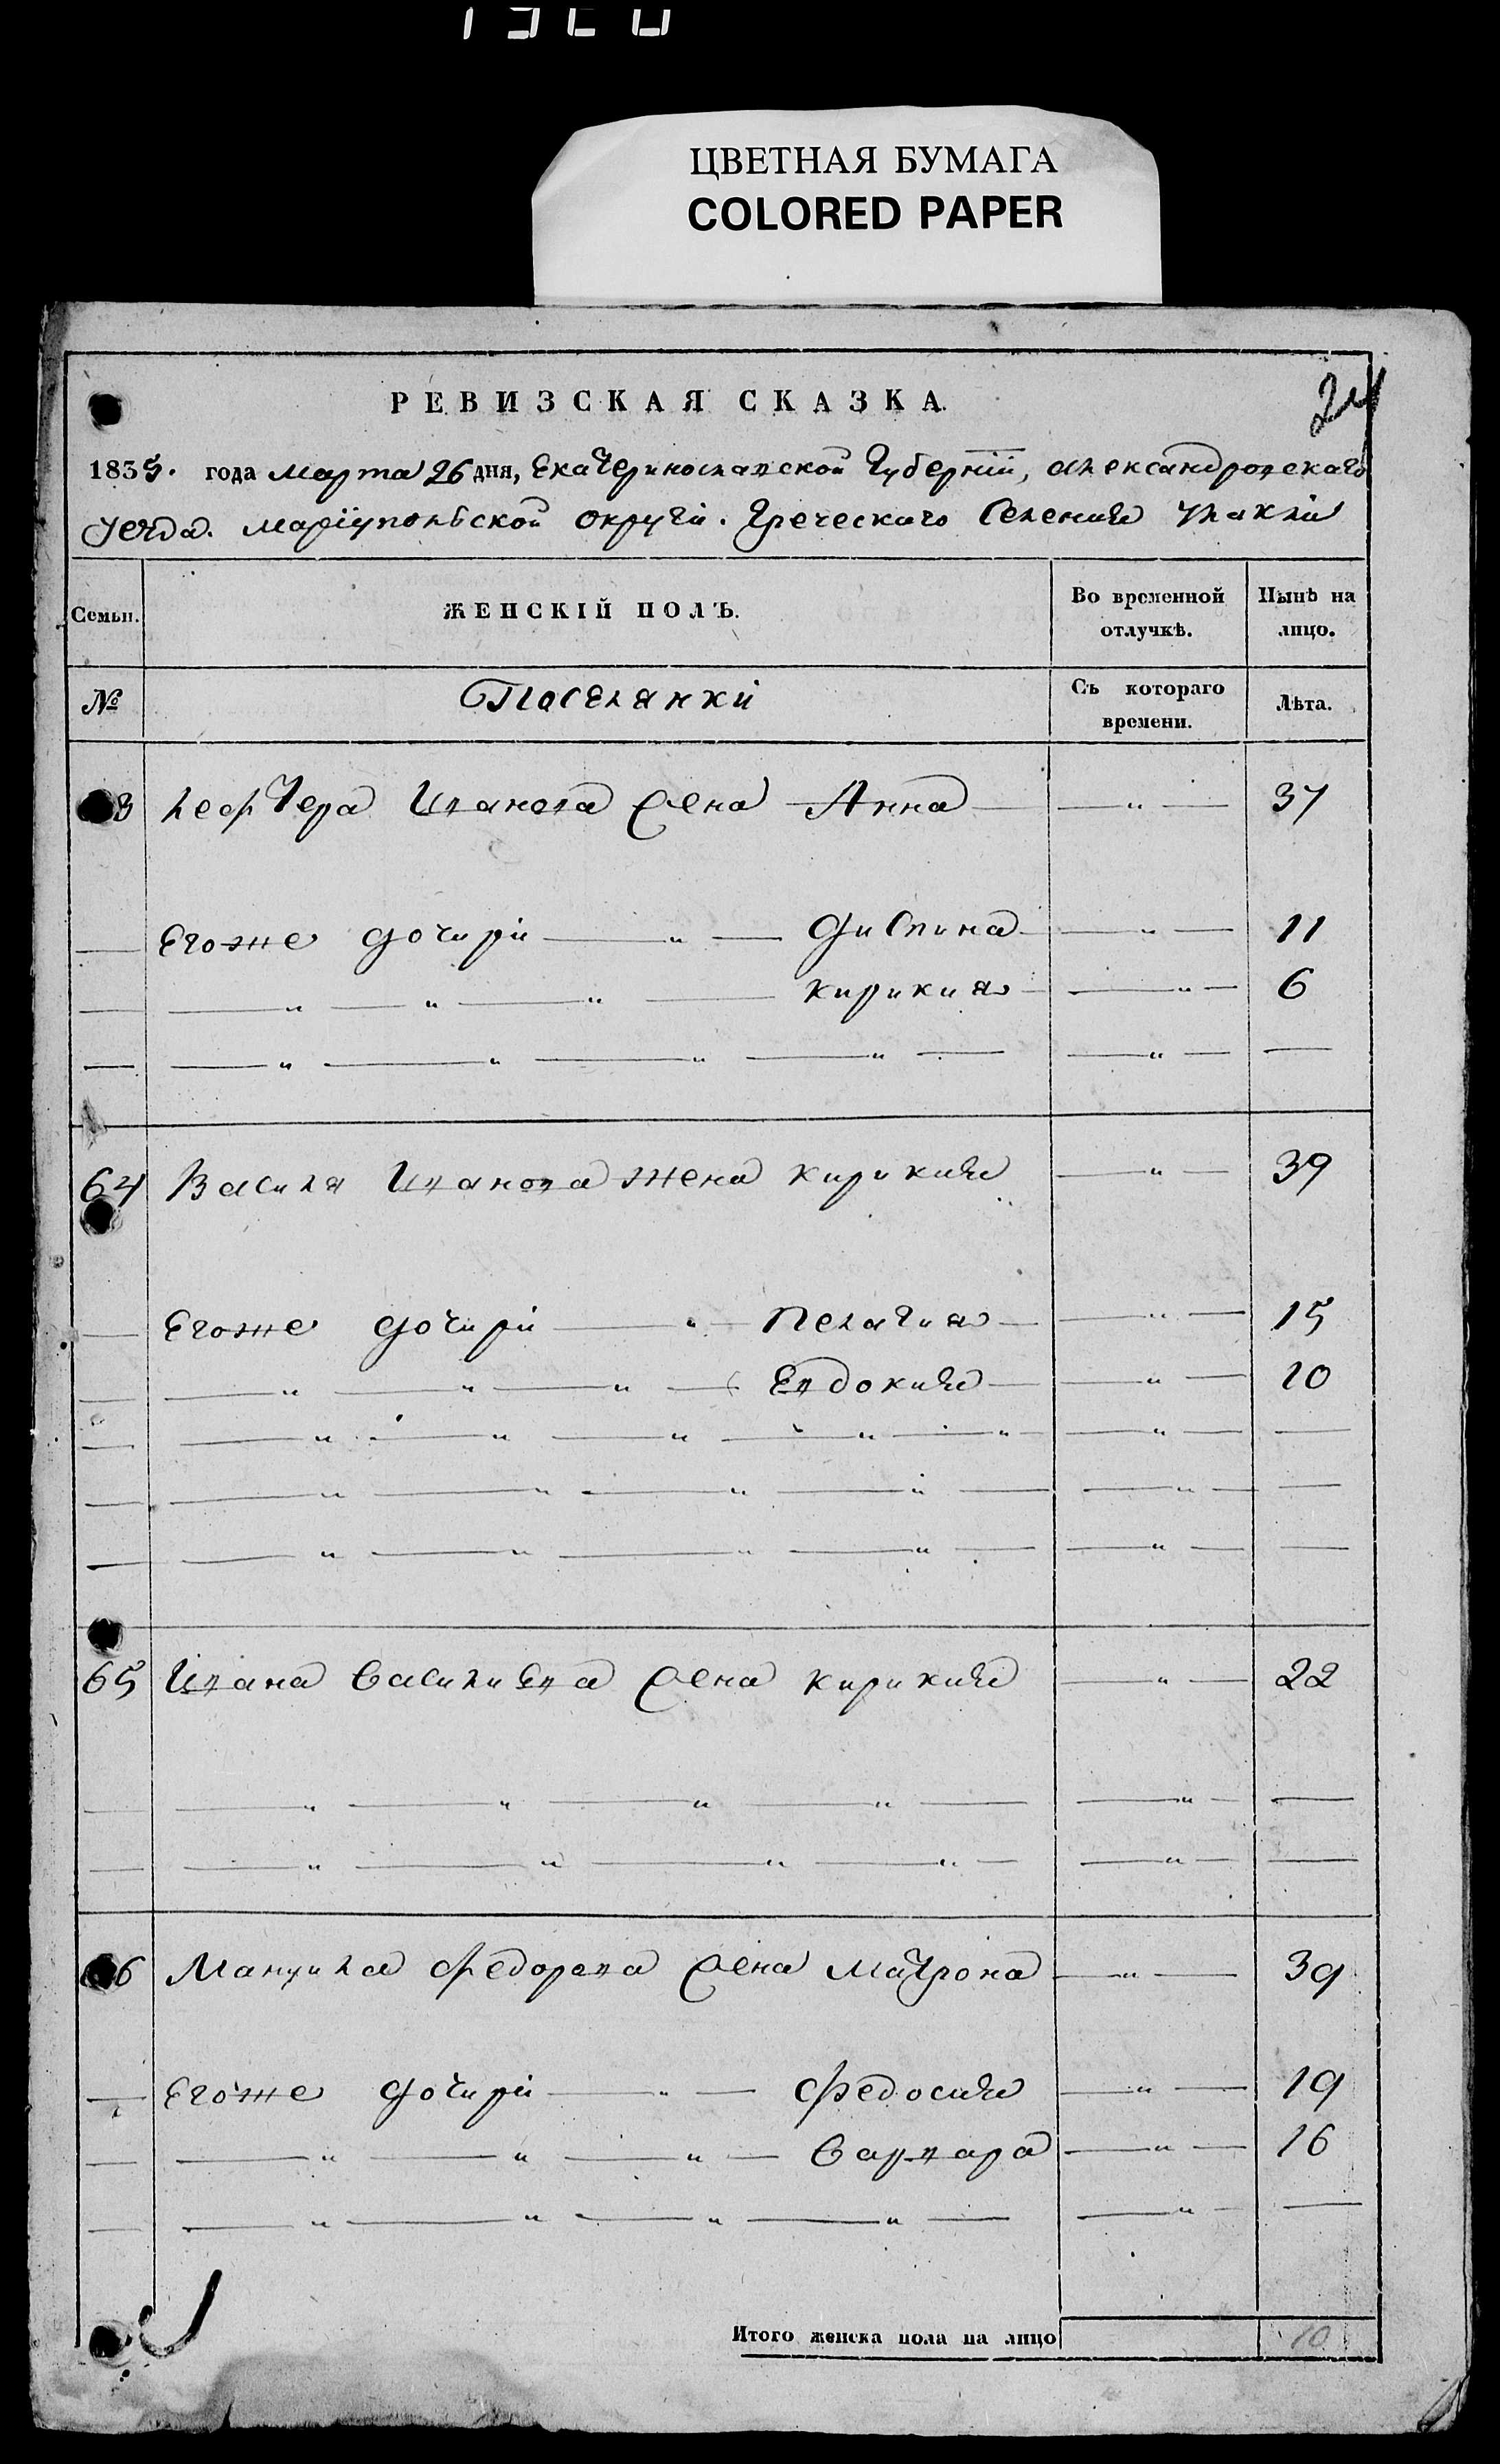 ЦВЕТНАЯ БУМАГА
COLORED PAPER
24
РЕВИЗСКАЯ СКАЗКА.
1835. года Марта 26 дня, Екатеринославской Губерніи, Александровскаго
уезда. Маріупольской округи. Греческаго Селения Улаклы
Семьи. ЖЕНСКІЙ ПОЛЪ. Во временной отлучкѣ. Нынѣ на лицо.
№ Поселянки Съ котораго времени. Лѣта.
3 Лефтера Иванова жена Анна — „ — 37
— Егоже дочири — „ — Диспина — „ — 11
— — „ — „ — „ — Кирикия — „ — 6
— — „ — „ — „ — „ — — „ — —
64 Василя Иванова жена Кирикия — „ — 39
— Егоже дочири — „ — Пелагия — „ — 15
— — „ — „ — „ — Евдокия — „ — 10
— — „ — „ — „ — „ — „ — — „ — —
— — „ — „ — „ — „ — — „ — —
— — „ — „ — „ — „ — — „ — —
65 Ивана Василиева жена Кирикия — „ — 22
— — „ — „ — „ — „ — — „ — —
— — „ — „ — „ — „ — — „ — —
66 Мануила Федорова жена Матрона — „ — 39
— Егоже дочири — „ — Федосия — „ — 19
— — „ — „ — „ — Варвара — „ — 16
— — „ — „ — „ — „ — — „ — —
Итого женска пола на лицо 10